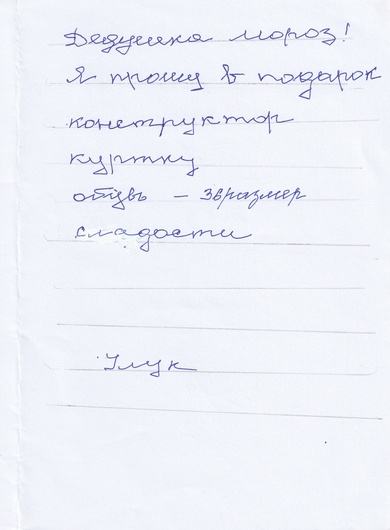 Дедушка мороз!
Я прошу в подарок
конструктор
куртку
обувь – 36размер
сладости
Улук